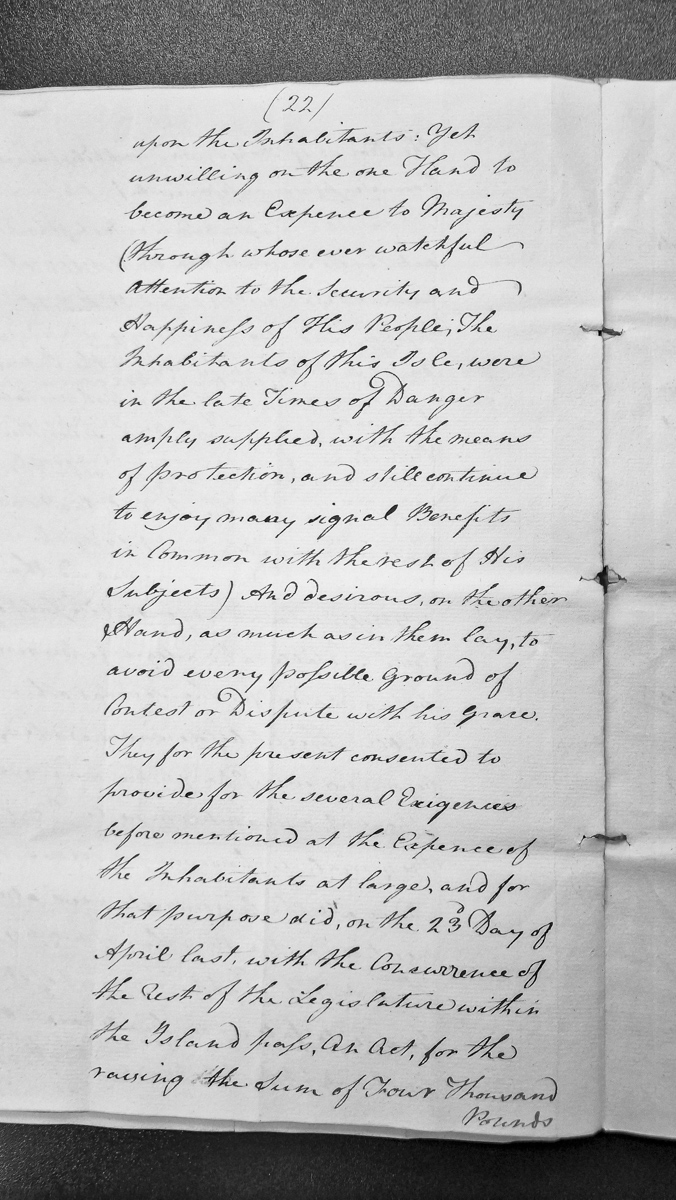 (22)
upon the Inhabitants: Yet
unwilling on the one Hand to
become an Expence to Majesty
(through whose ever watchful
Attention to the Security and
Happiness of His People, The
Inhabitants of this Isle, were
in the late Times of Danger
amply supplied, with the means
of protection, and still continue
to enjoy many signal Benefits
in Common with the rest of His
Subjects) And desirous, on the other
Hand, as much as in them lay, to
avoid every possible Ground of
Contest or Dispute with his Grace.
They for the present consented to
provide for the several Exigencies
before mentioned at the Expence of
the Inhabitants at large, and for
that purpose did, on the 23d Day of
April last, with the Concurrence of
the Rest of the Legislature within
the Island pass, An Act, for the
raising the Sum of Four Thousand
Pounds